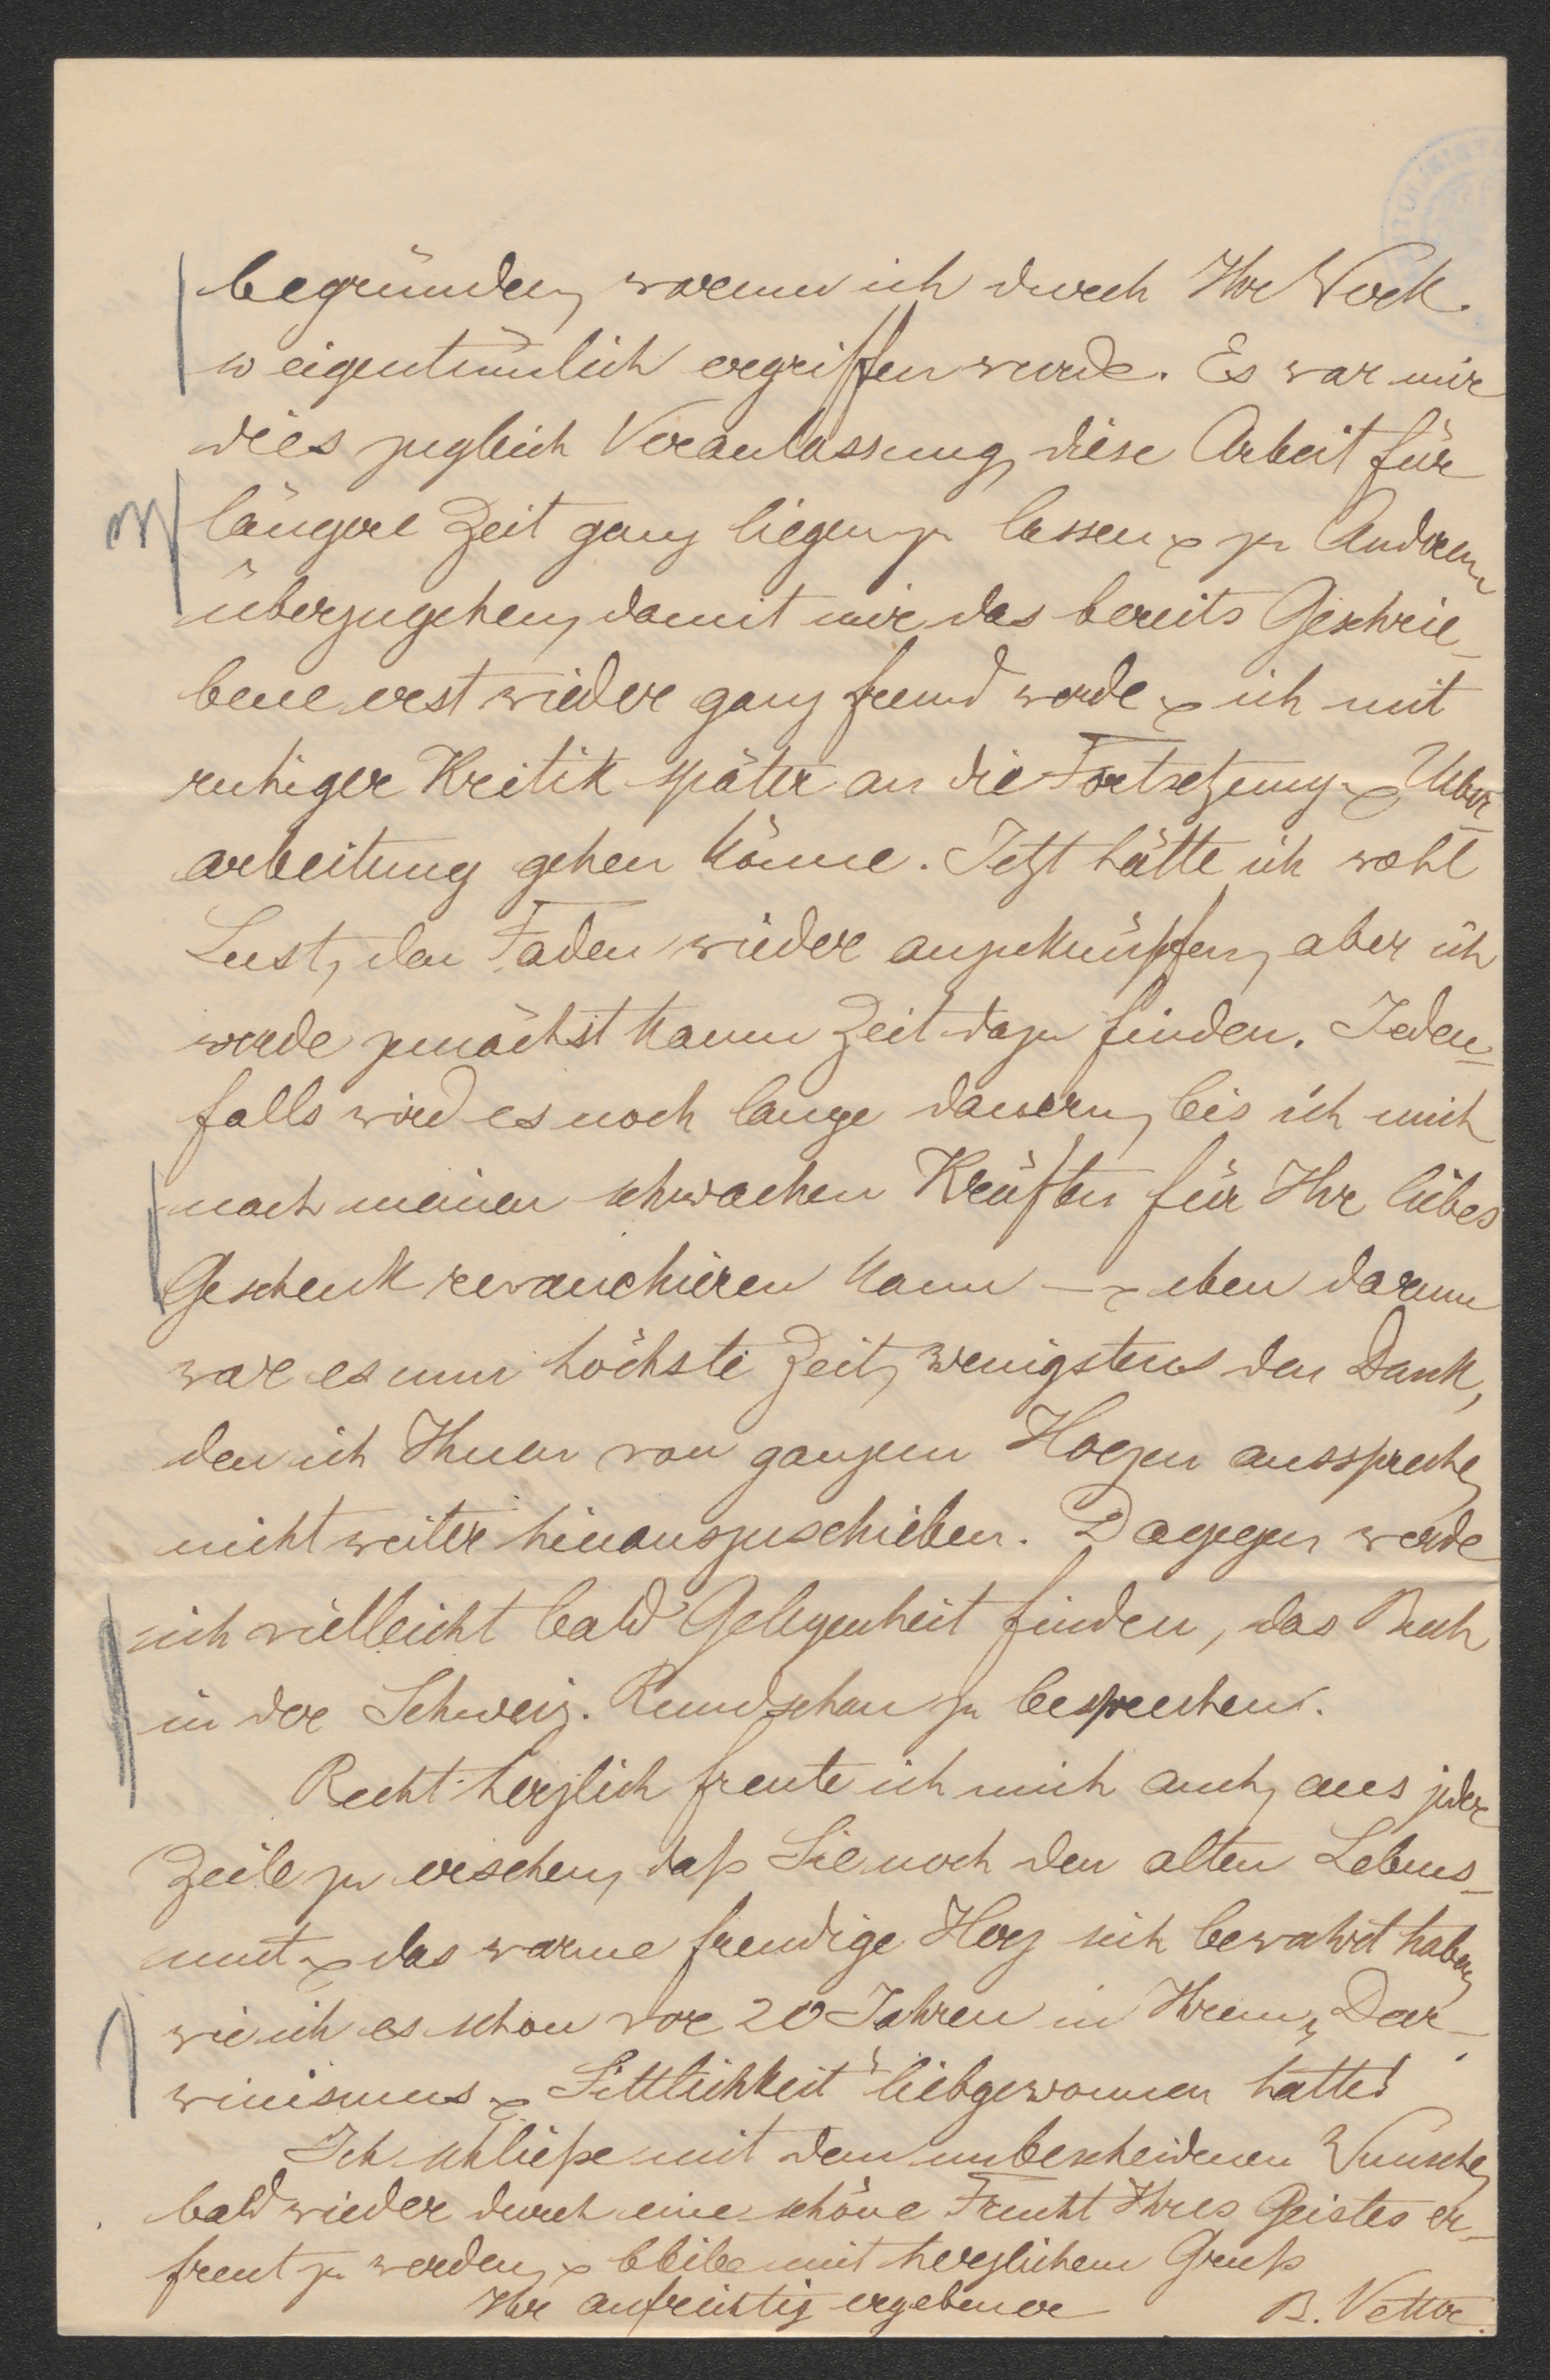 begründen, warum ich durch Ihr Werk
so eigentümlich ergriffen wurde. Es war mir
dies zugleich Veranlassung, diese Arbeit für
längere Zeit ganz liegen zu lassen & zu Anderem
überzugehen, damit mir das bereits Geschrie-
bene erst wieder ganz fremd werde & ich mit
ruhiger Kritik später an die Fortsetzung & Ueber-
arbeitung gehen könne. Jetzt hätte ich wohl
Lust, den Faden wieder anzuknüpfen, aber ich
werde zunächst kaum Zeit dazu finden. Jeden-
falls wird es noch lange dauern, bis ich mich
nach meinen schwachen Kräften für Ihr liebes
Geschenk revanchieren kann — & eben darum
war es nun höchste Zeit, wenigstens den Dank,
den ich Ihnen von ganzem Herzen ausspreche,
nicht weiter hinauszuschieben. Dagegen werde
ich vielleicht bald Gelegenheit finden, das Buch
in der Schweiz. Rundschau zu besprechen.
Recht herzlich freute ich mich auch, aus jeder
Zeile zu ersehen, daß Sie noch den alten Lebens-
mut & das warme freudige Herz sich bewahrt haben,
wie ich es schon vor 20 Jahren in Ihrem „Dar-
winismus & Sittlichkeit“ liebgewonnen hatte!
Ich schließe mit dem unbescheidenen Wunsche,
bald wieder durch eine schöne Frucht Ihres Geistes er-
freut zu werden, & bleibe mit herzlichem Gruß
Ihr aufrichtig ergebener B. Vetter.